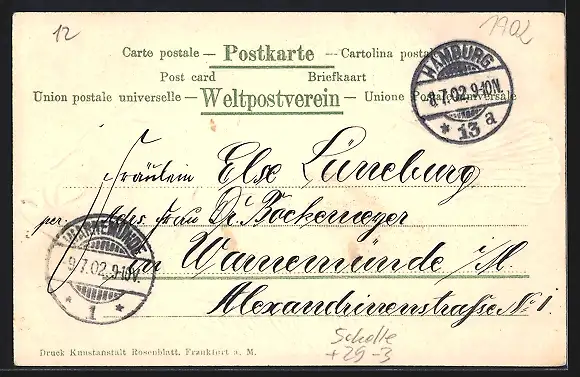 12
1902
Carte postale — Postkarte — Cartolina postale
Post card Briefkaart
Union postale universelle — Weltpostverein — Unione Postale universale
HAMBURG
8.7.02.9-10N.
* 13 a
Fräulein Else Lüneburg
per. Adrs. Frau Dr. Bockemeyer
WARNEMÜNDE
9.7.02.9-10V.
* 1 *
in Warnemünde i/M
Alexandrinenstrasse No 1.
Scholle
+29-3
Druck Kunstanstalt Rosenblatt. Frankfurt a. M.